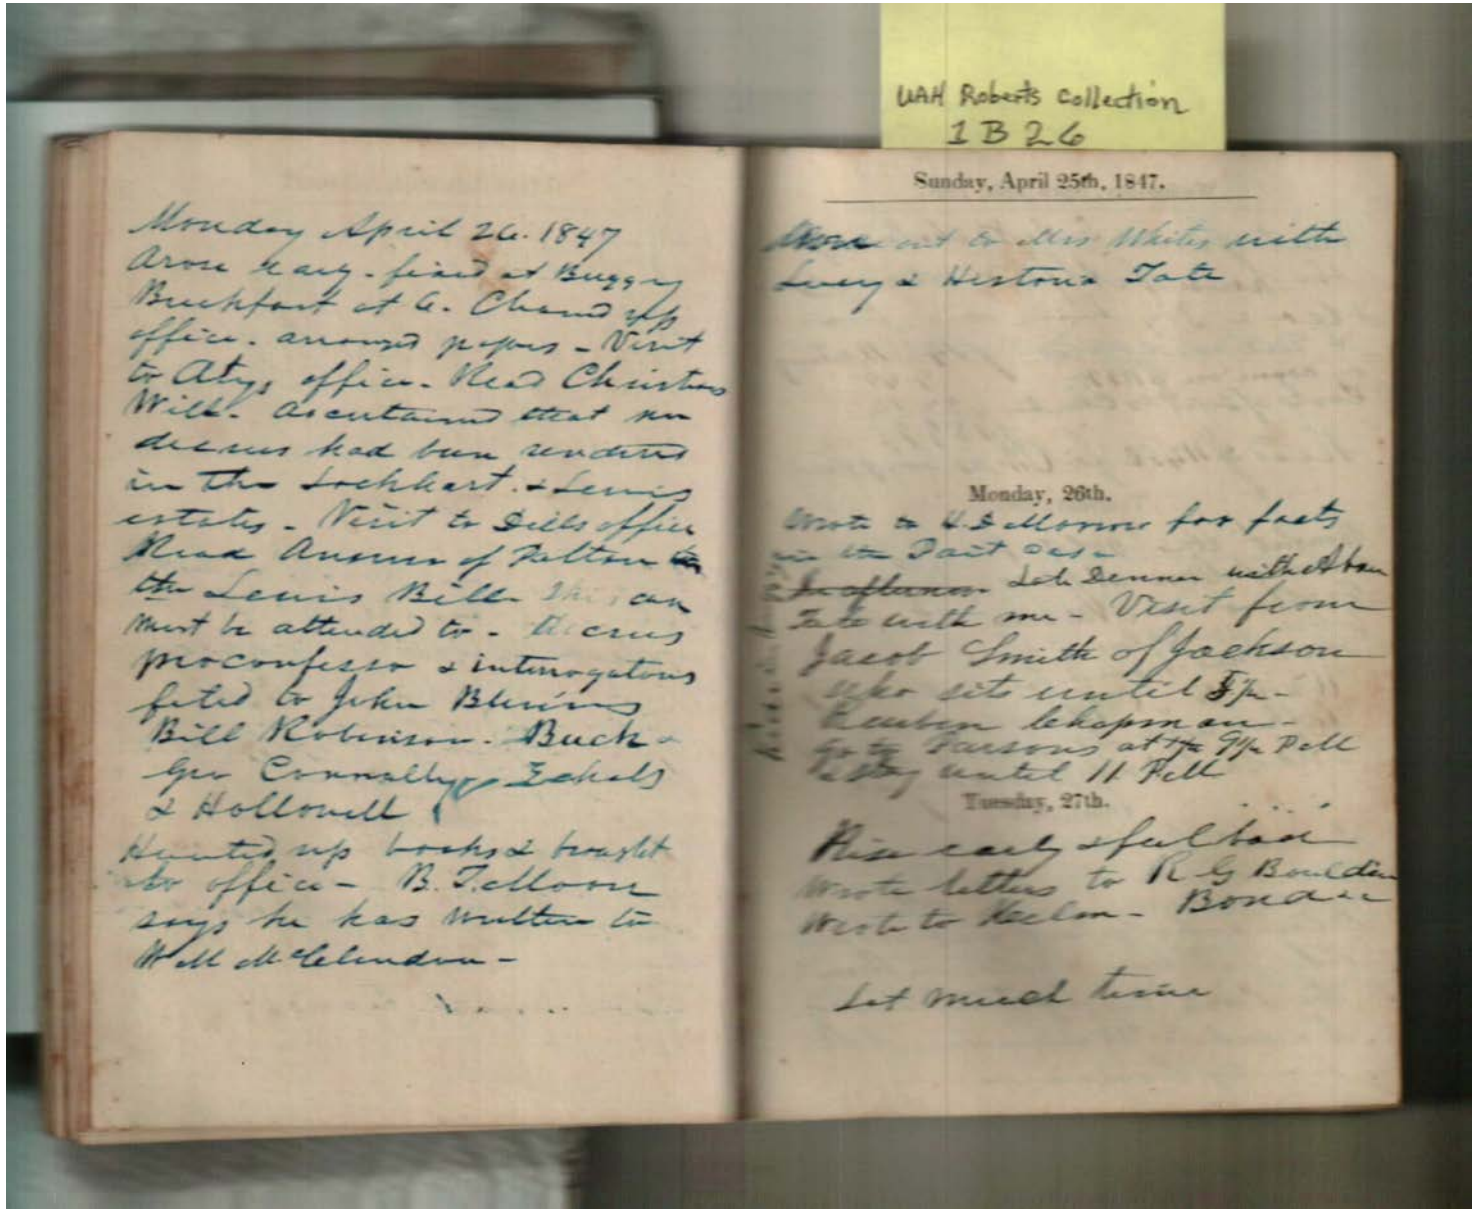 UAH Roberts Collection
1 B 26
Monday April 26. 1847
Arose early - fixed at Buggy
Breakfast at 6. Cleaned up
office. arranged papers - Visit
to Atys office - Read Christians
Will. Ascertained that no
decrees had been rendered
in the Lockhart & Lewis
estates - Visit to Dills office
Read Answer of Felton
the Lewis Bill.
must be attended to - decrees
proconfesso & interrogatories
to John Blevins
Bill Robinson. Buck
Geo Connally Echols
& Hollowell
Hunted up books & brought
to office - B. T. Moore
says he has written to
W M McClendon -
Sunday, April 25th, 1847.
out to Mrs Whites with
Lucy & Historia Tate
Monday, 26th.
Wrote to H. D for facts
in the case
In afternoon Dinner with
Tate with me - Visit from
Jacob Smith of Jackson
who sits until
Reuben Chapman -
Go to Parsons at
& stay until 11
Tuesday, 27th.
Rise early & feel bad
Wrote letters to R G
Wrote to
much time